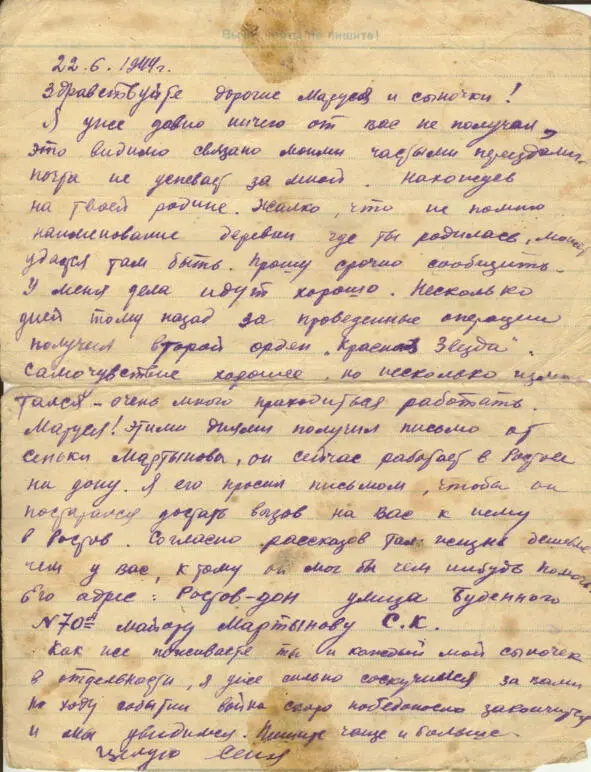 Выше черты не пишите!
22.6.1944г.
Здравствуйте дорогие Маруся и сыночки!
Я уже давно ничего от вас не получал,
это видимо связано моими частыми переездами
почта не успевает за мной. Нахожусь
на твоей родине. Жалко, что не помню
наименование деревни где ты родилась, может
удастся там быть. Прошу срочно сообщить.
У меня дела идут хорошо. Несколько
дней тому назад за проведенные операции
получил второй орден „Красная Звезда".
Самочувствие хорошее, но несколько измо
тался – очень много приходиться работать.
Маруся! Этими днями получил письмо от
Сеньки Мартынова, он сейчас работает в Ростове
на дону. Я его просил письмом, чтобы он
постарался достать вызов на вас к нему
в Ростов. Согласно рассказов там жизнь дешевле
чем у вас, к тому он мог бы чем нибудь помочь.
Его адрес: Ростов-дон улица Буденного
№70а майору Мартынову С.К.
Как же поживаете ты и каждый мой сыночек
в отдельности, я уже сильно соскучился за вами
по ходу событий война скоро победоносно закончится
и мы увидимся. Пишите чаще и больше
Целую Сеня